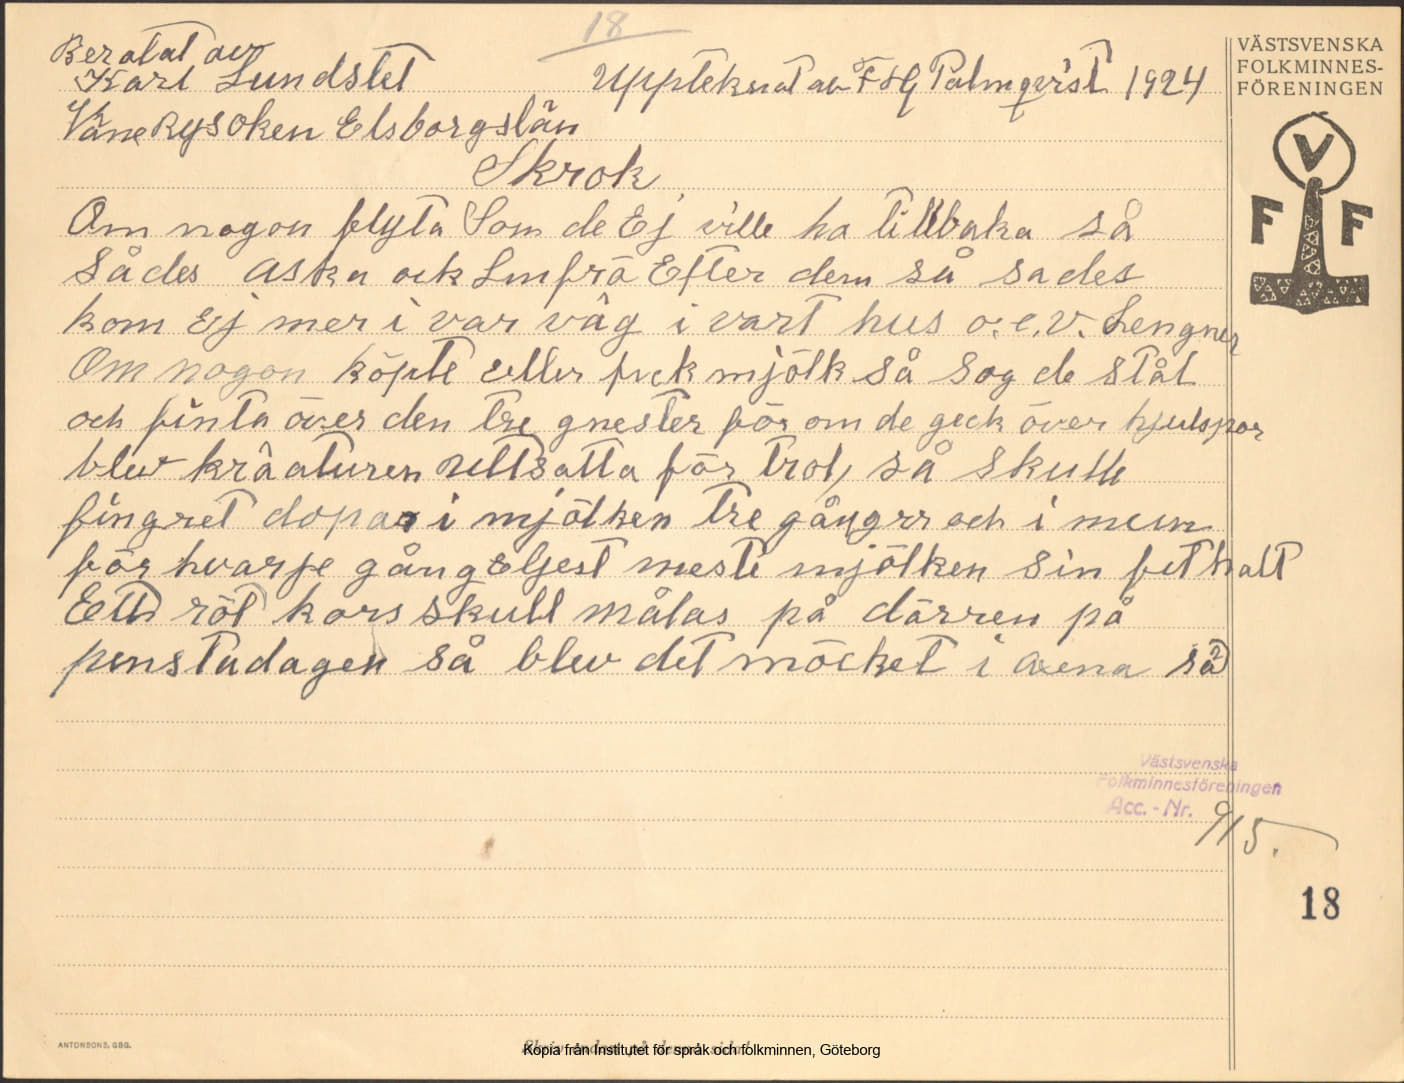 18
Beratat av
Karl Lundstet
Uppteknat av F H G Palmqvist 1924
Väne Rysoken Elsborgslän
Skrok
Om nogon flyta Som de Ej ville ha tillbaka så
Sådes aska ock Linfrö Efter dem så sades
kom Ej mer i var väg i vart hus o. e. v. Lengner
Om nogon köpte eller fick mjölk så sog de stål
och flinta över den tre gnester för om de geck över hjulspor
blev kräaturen uttsatta för trol, så skulle
fingret dopas i mjölken tre gångrr och i mun
för hvarje gång Eljest meste mjölken sin fethalt
Ett röt kors skull målas på därren på
penstadagen så blev det möcket i så
VÄSTSVENSKA
FOLKMINNES-
FÖRENINGEN
V
F F
Västsvenska
Folkminnesföreningen
Acc. - Nr. 915.
18
ANTONSONS, GBG.
Kopia från Institutet för språk och folkminnen, Göteborg